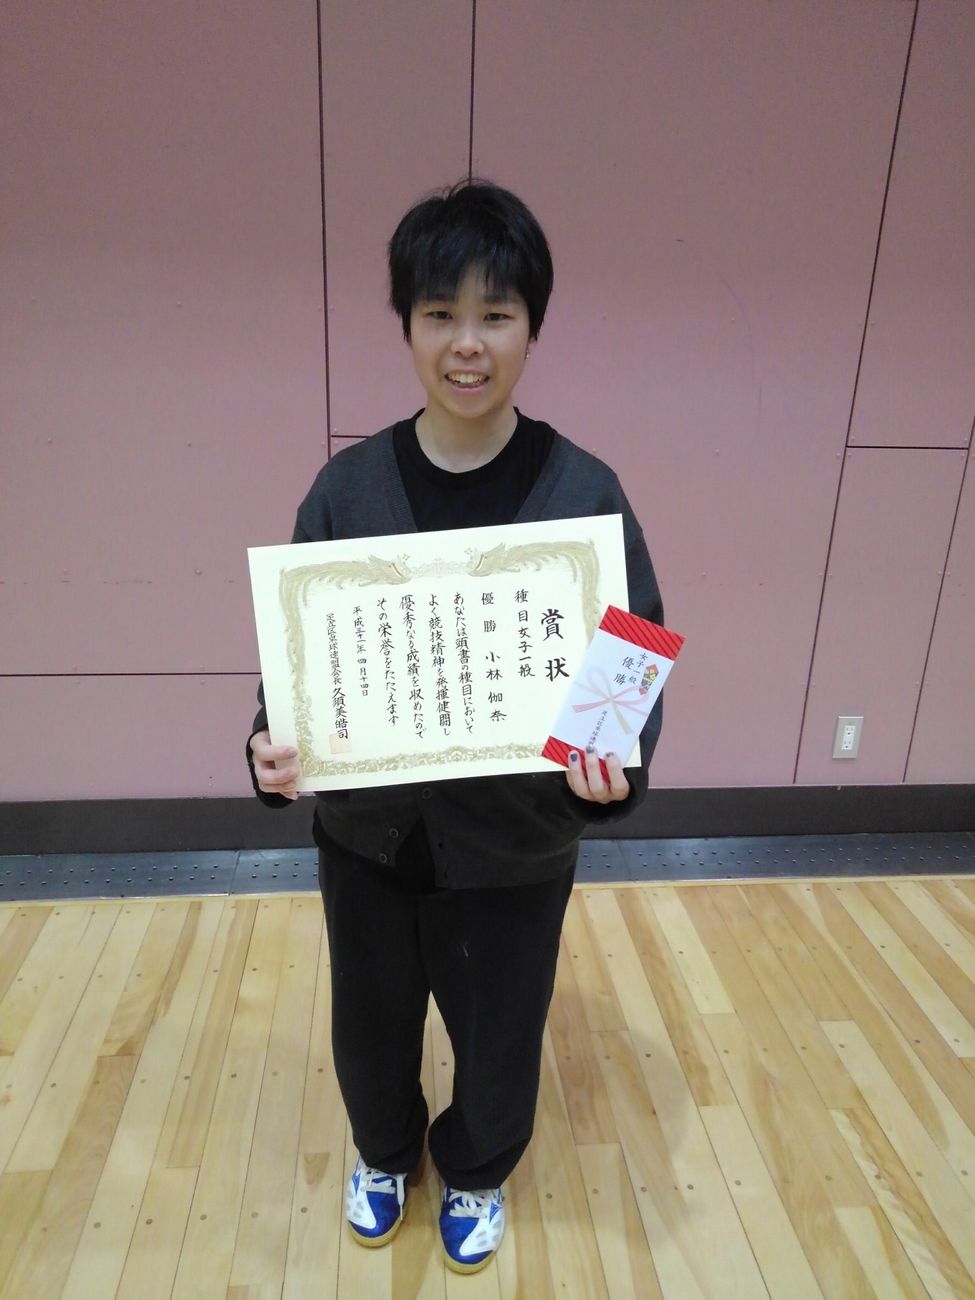 賞状
種目 女子一般
優勝 小林 伽奈
あなたは頭書の種目において
よく競技精神を発揮健闘し
優秀なる成績を収めたので
その栄誉をたたえます
平成三十一年 四月十四日
足立区卓球連盟会長 久須美皓司
女子一般
優勝
足立区卓球連盟